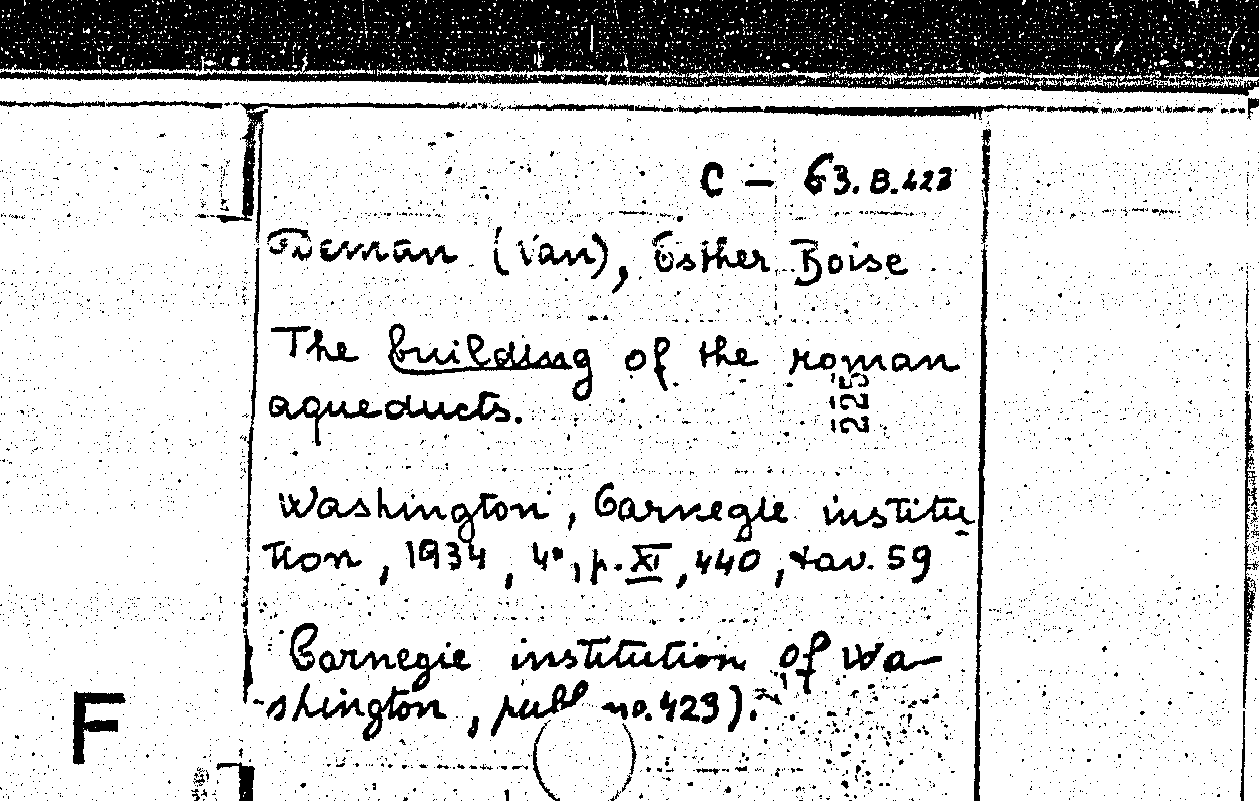 C - 63.B.423
Deman (Van), Esther Boise
The building of the roman
225
aqueducts.
Washington, Carnegie institu-
tion, 1934, 4°, p. XI, 440, tav. 59
Carnegie institution of Wa-
shington, publ no. 423).
F